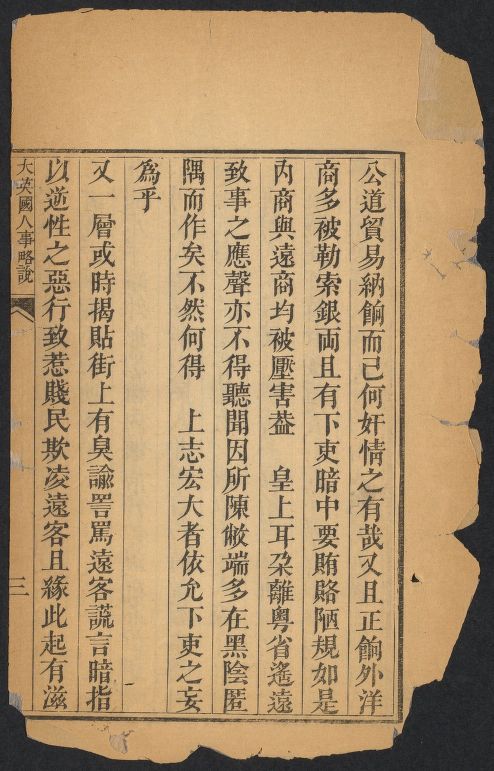 公道貿易納餉而已何奸情之有哉又且正餉外洋
商多被勒索銀両且有下吏暗中要賄賂陋規如是
內商與遠商均被壓害葢 皇上耳朶離粵省遙遠
致事之應聲亦不得聽聞因所陳敝端多在黑陰匿
隅而作矣不然何得 上志宏大者依允下吏之妄
為乎
又一層或時揭貼街上有臭諭詈罵遠客謊言暗指
以逆性之惡行致惹賤民欺凌遠客且緣此起有滋
大英國人事略說
三